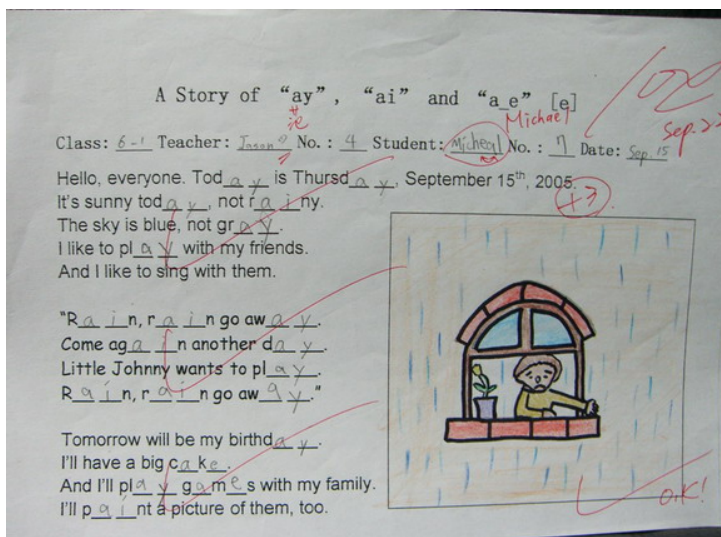 A Story of "ay", "ai" and "a_e" [e]
Michael
100
Sep. 22
Class: 6-1 Teacher: Jason No.: 4 Student: Micheal No.: 7 Date: Sep. 15
Hello, everyone. Today is Thursday, September 15th, 2005.
+3
It's sunny today, not rainy.
The sky is blue, not gray.
I like to play with my friends.
And I like to sing with them.
"Rain, rain go away.
Come again another day.
Little Johnny wants to play.
Rain, rain go away."
Tomorrow will be my birthday.
I'll have a big cake.
And I'll play games with my family.
I'll paint a picture of them, too.
O.K!